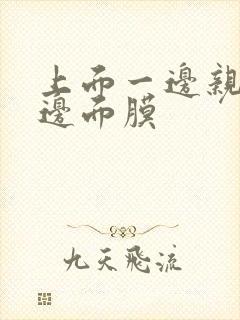 上而一邊親
邊而膜
九天飛流